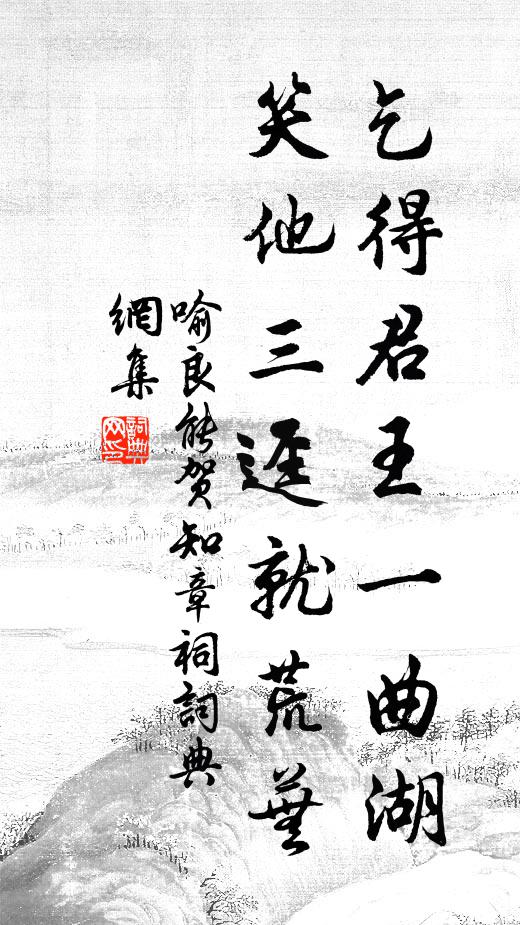 乞得君王一曲湖
笑他三逕就荒蕪
喻良能賀知章祠詞典
網集
詞典
网